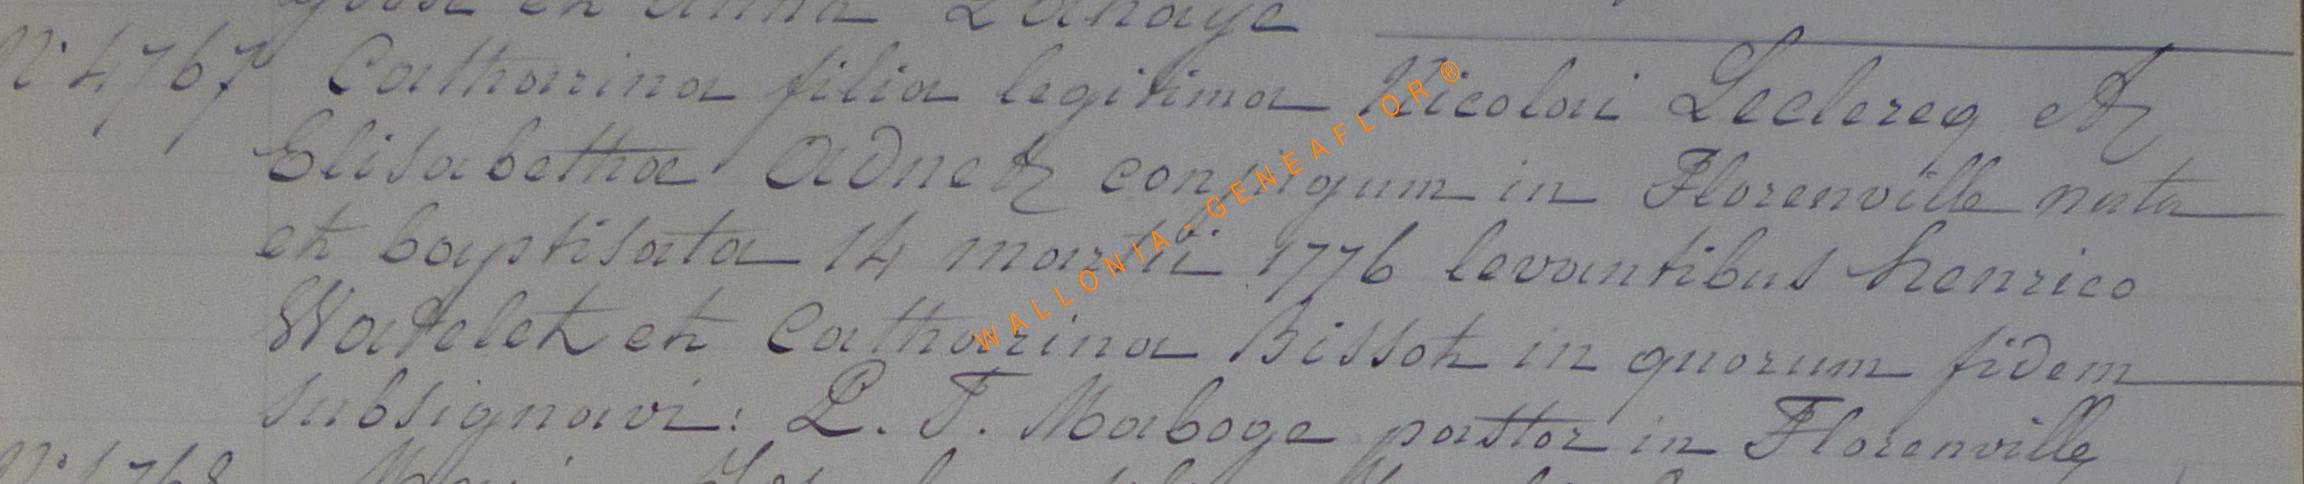 et anna Lahaye
N° 4767 Catharina filia legitima Nicolai Leclercq et
Elisabetha Adnet conjugum in Florenville nata
et baptisata 14 martii 1776 levantibus henrico
Watelet et Catharina Bissot in quorum fidem
subsignavi: L. F. Maboge pastor in Florenville
N° 4768
WALLONIA - GENEAFLOR ®